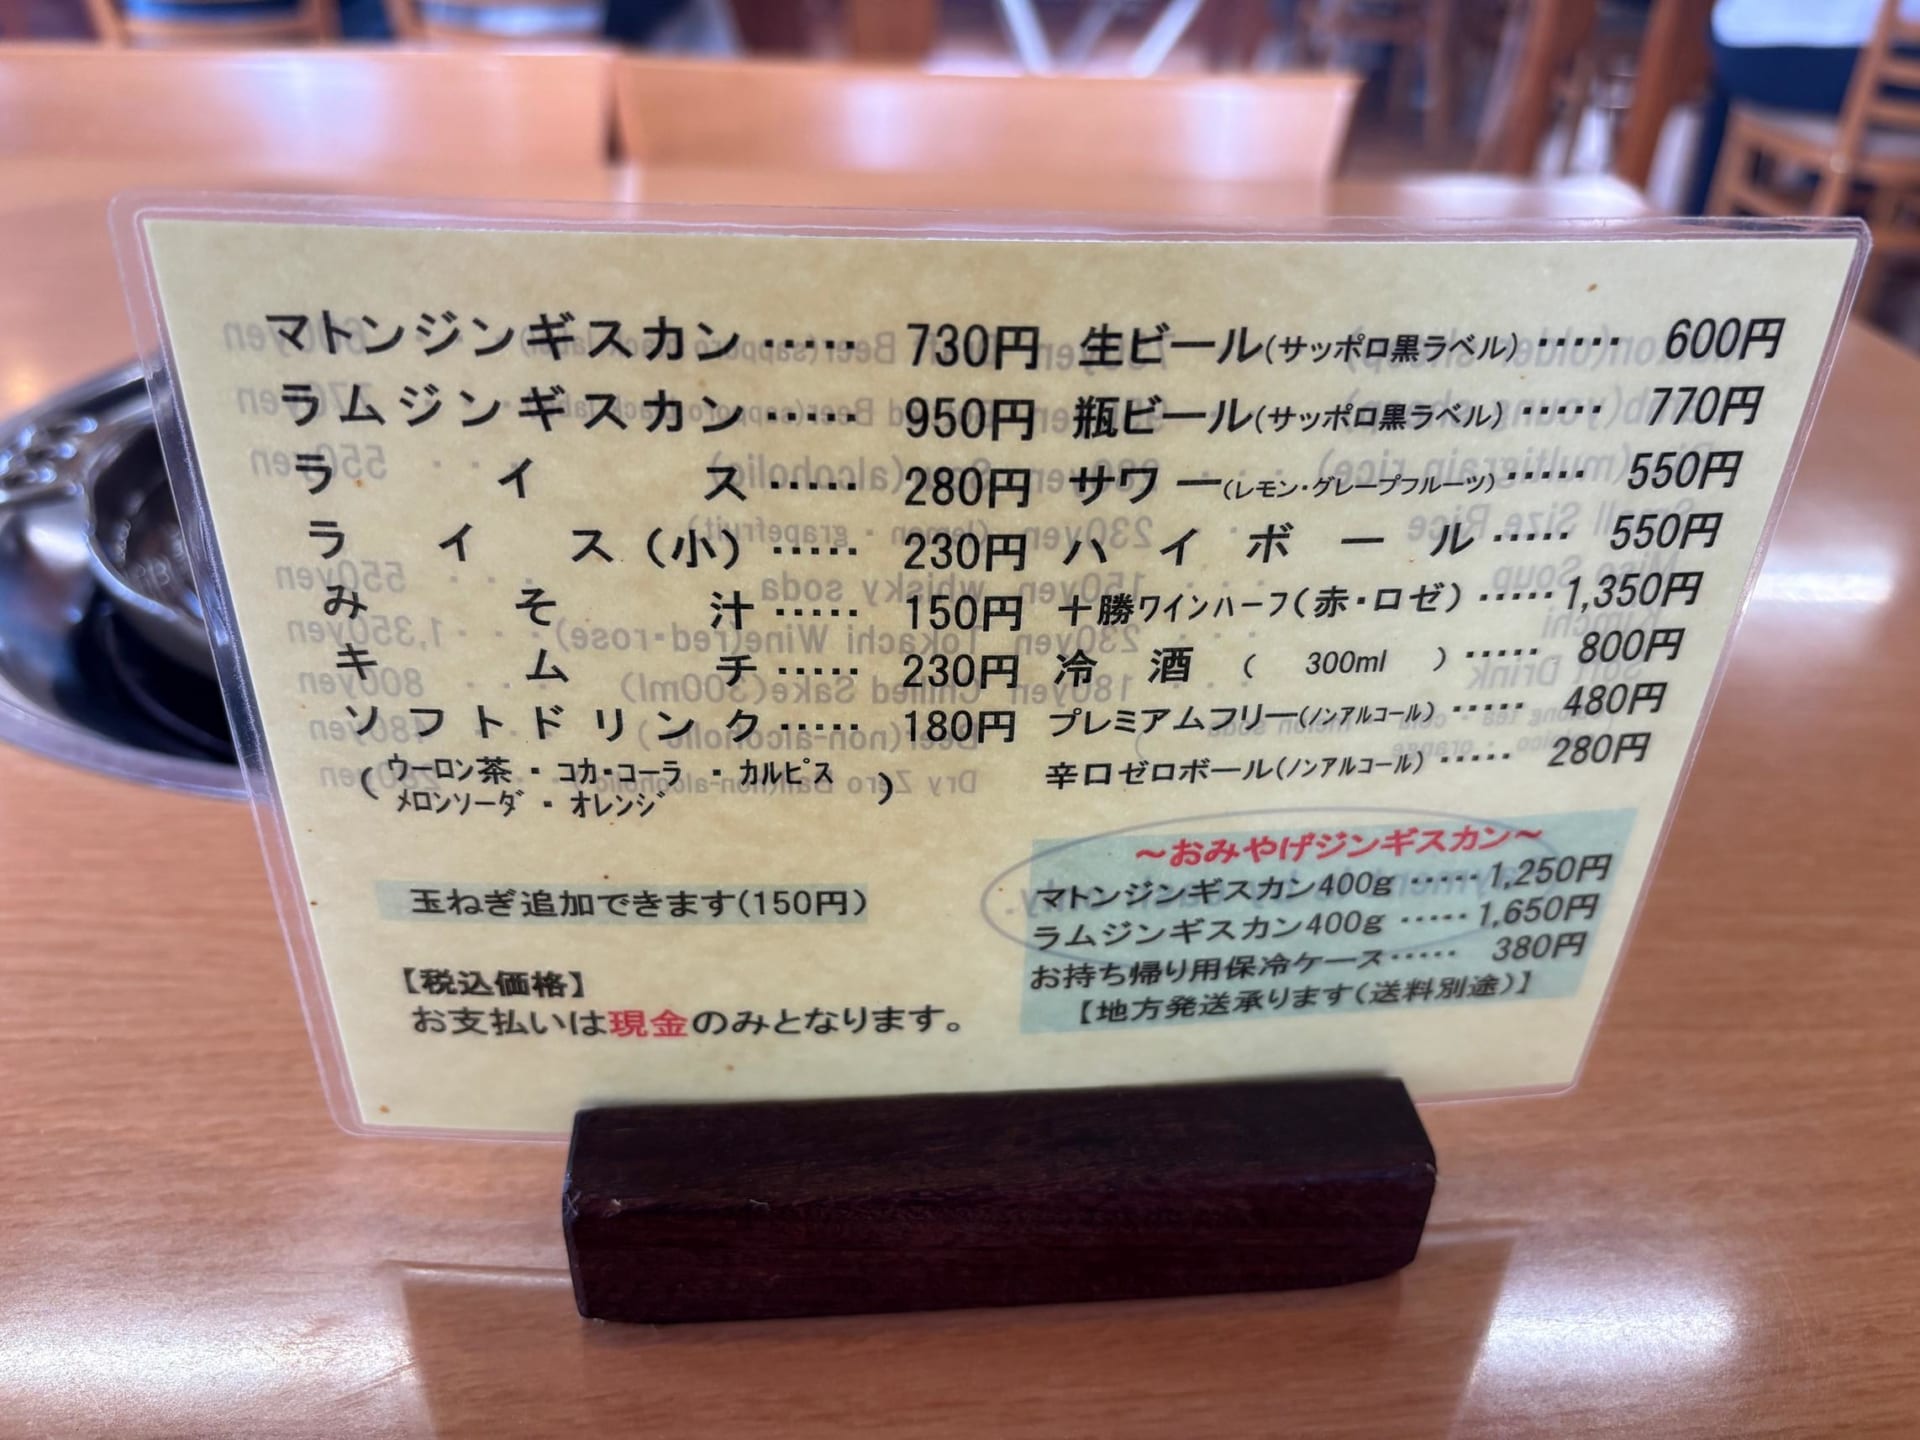 マトンジンギスカン ····· 730円
ラムジンギスカン ····· 950円
ライス ····· 280円
ライス(小) ····· 230円
みそ汁 ····· 150円
キムチ ····· 230円
ソフトドリンク ····· 180円
(ウーロン茶・コカ・コーラ・カルピス
メロンソーダ・オレンジ)
玉ねぎ追加できます(150円)
【税込価格】
お支払いは現金のみとなります。
生ビール(サッポロ黒ラベル) ····· 600円
瓶ビール(サッポロ黒ラベル) ····· 770円
サワー(レモン・グレープフルーツ) ····· 550円
ハイボール ····· 550円
十勝ワインハーフ(赤・ロゼ) ····· 1,350円
冷酒(300ml) ····· 800円
プレミアムフリー(ノンアルコール) ····· 480円
辛口ゼロボール(ノンアルコール) ····· 280円
～おみやげジンギスカン～
マトンジンギスカン400g ····· 1,250円
ラムジンギスカン400g ····· 1,650円
お持ち帰り用保冷ケース ····· 380円
【地方発送承ります(送料別途)】